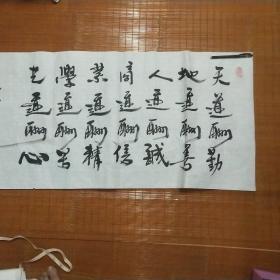 天道酬勤
地道酬善
人道酬誠
商道酬信
業道酬精
學道酬苦
道酬心